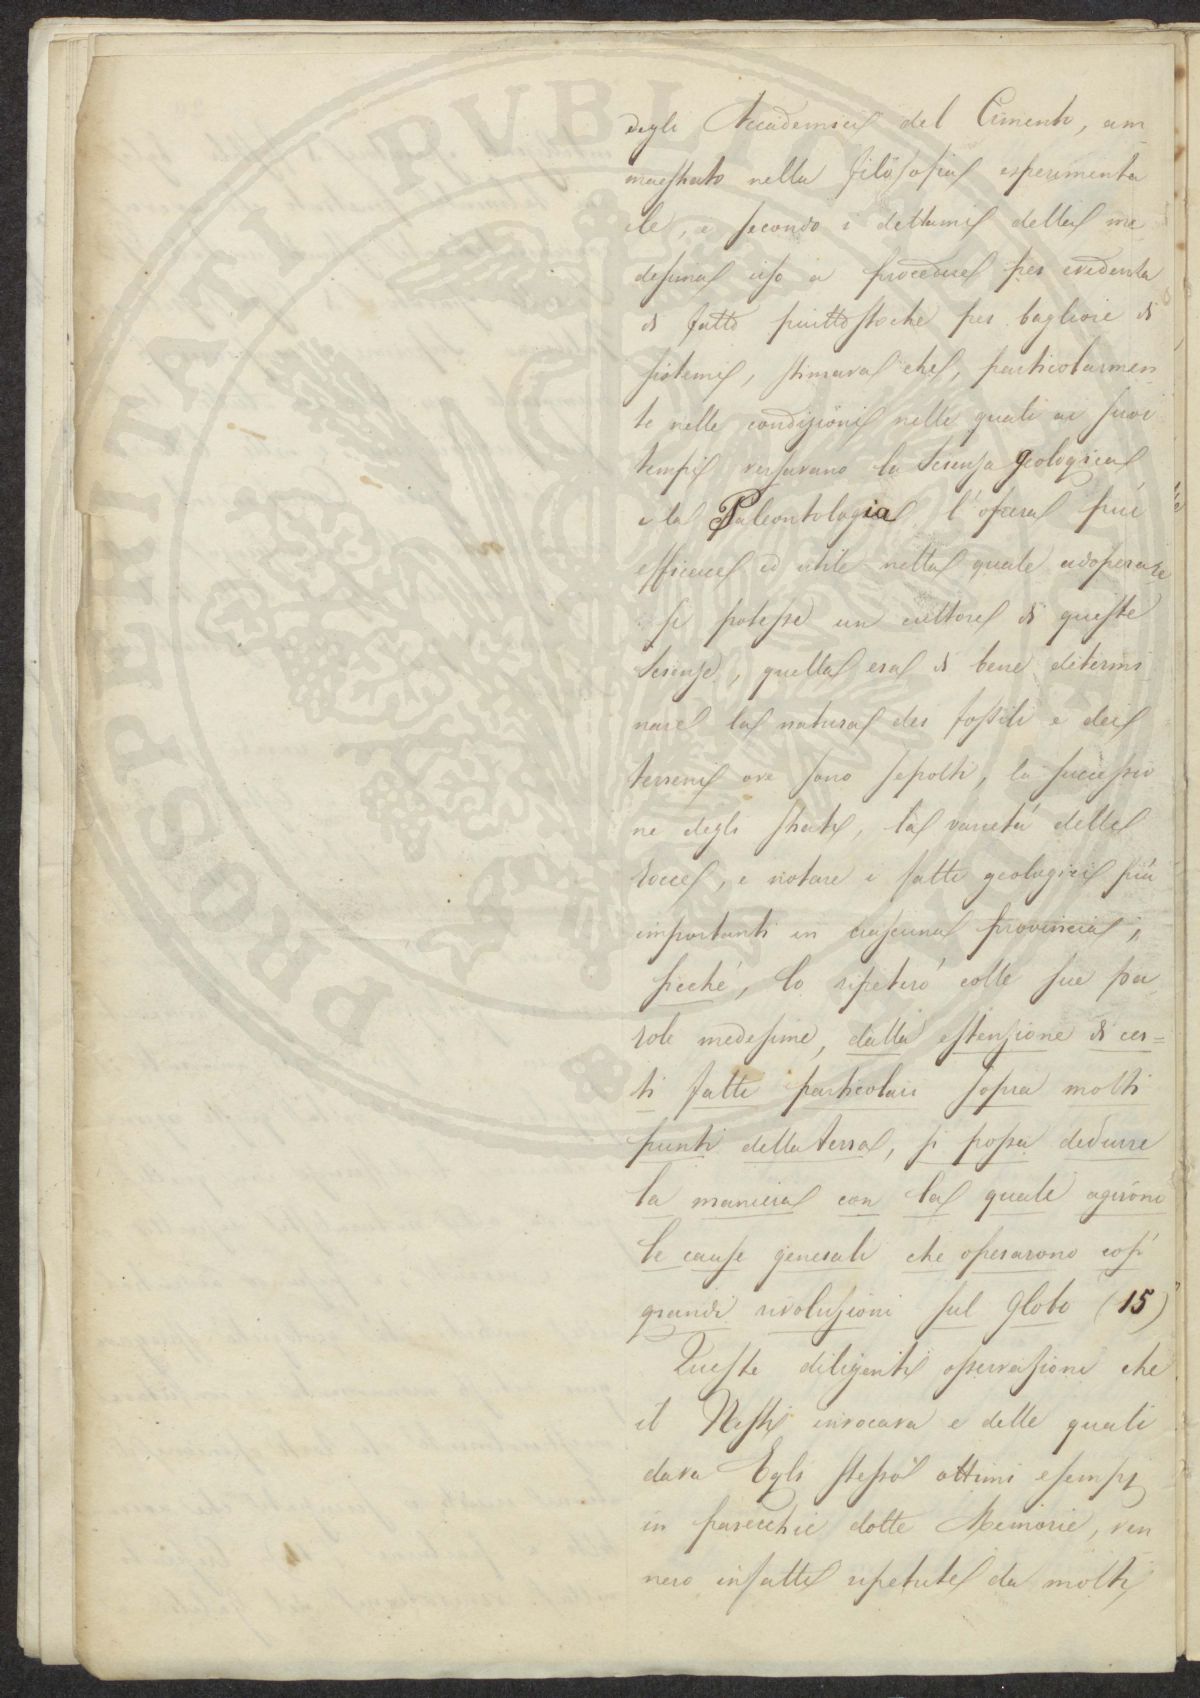 degli Accademici del Cimento, am
maestrato nella filosofia esperimenta
le, e secondo i dettami della me
desima uso a procedere per evidenza
di fatto piuttostoche per bagliore di
sistemi, stimava che, particolarmen
te nelle condizioni nelle quali ai suoi
tempi versavano la Scienza geologica
e la Paleontologia l'opera piú
efficace ed utile nella quale adoperare
si potesse un cultore di queste
Scienze, quella era di bene determi
nare la natura dei fossili e dei
terreni ove sono sepolti, la successio
ne degli strati, la varietá delle
rocce, e notare i fatti geologici piú
importanti in ciascuna provincia;
sicché, lo ripeteró colle sue pa
role medesime, dalla estensione di cer=
ti fatti particolari sopra molti
punti della terra, si possa dedurre
la maniera con la quale agirono
le cause generali che operarono cosí
grandi rivoluzioni sul globo (15)
Queste diligenti osservazioni che
il Nesti invocava e delle quali
dava Egli stesso ottimi esempj
in parecchie dotte Memorie, ven
nero infatti ripetute da molti,
PROSPERITATI PVBLICAE